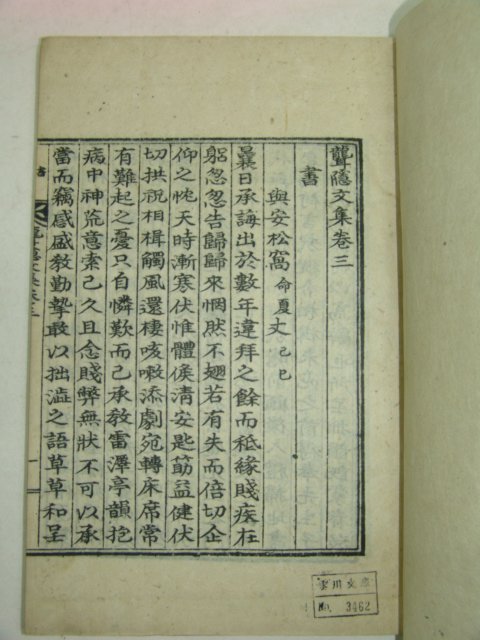 聾隱文集卷三
書
與安松窩 命夏 丈 己巳
曩日承誨出於數年違拜之餘而秪緣賤疾在
躬忽忽告歸歸來惘然不翅若有失而倍切企
仰之忱天時漸寒伏惟體候淸安匙筯益健伏
切拱祝相楫觸風還棲咳嗽添劇宛轉床席常
有難起之憂只自憐歎而已承敎雷澤亭韻抱
病中神荒意索已久且念賤弊無狀不可以承
當而竊感盛敎勤摯敢以拙澁之語草草和呈
書
文集卷三
一
No. 3462